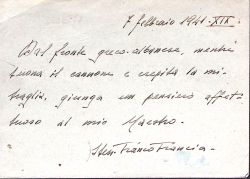 7 febbraio 1941-XIX=
Dal fronte greco-albanese, mentre
tuona il cannone e crepita la mi-
traglia, giunga un pensiero affet-
tuoso al mio Maestro.
Franco Francia